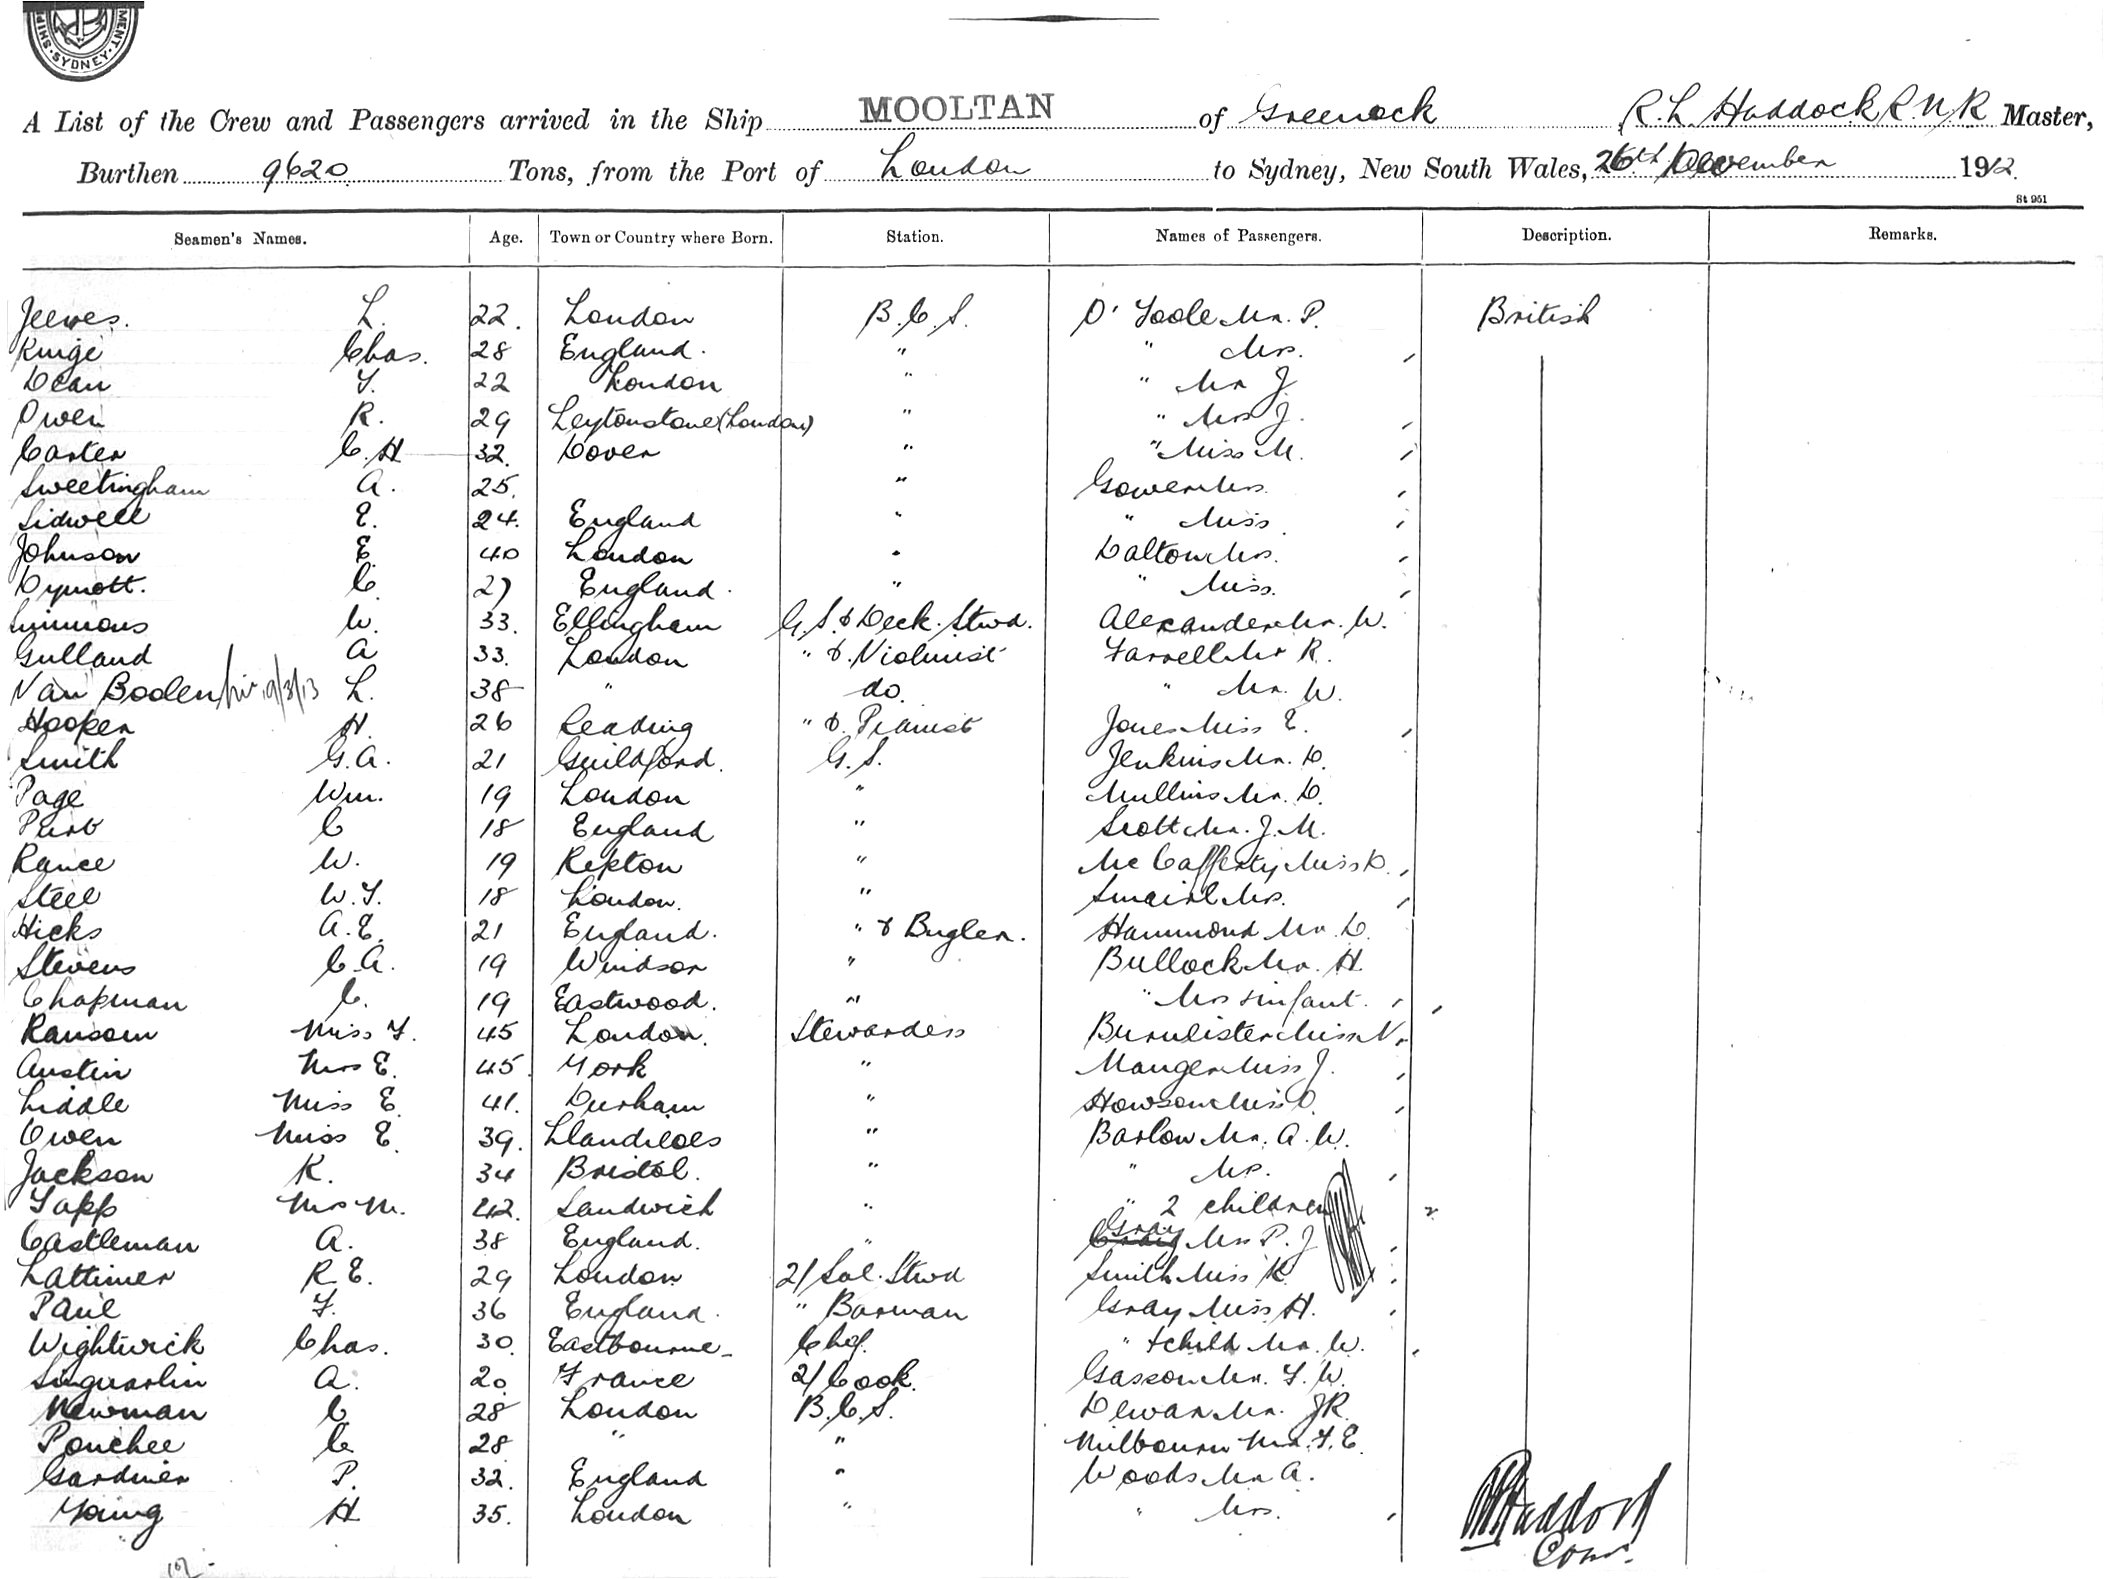 SYDNEY
A List of the Crew and Passengers arrived in the Ship MOOLTAN of Greenock R. L. Haddock R.N.R Master,
Burthen 9620 Tons, from the Port of London to Sydney, New South Wales, 26th December 1912.
St 951
Seamen's Names. Age. Town or Country where Born. Station. Names of Passengers. Description. Remarks.
Jeeves. L. 22. London B.C.S. O'Toole Mr. P. British
Kinge Chas. 28 England. " " Mrs.
Dean F. 22 London " " Mr J
Owen R. 29 Leytonstone (London) " " Mrs J.
Carter C.H 32. Dover " " Miss M.
Sweetingham A. 25. " Gower Mrs.
Sidwell E. 24. England " " Miss
Johnson E 40 London " Dalton Mrs.
Dymott. C. 27 England. " " Miss.
Simmons W. 33. Ellingham G.S. & Deck. Stwd. Alexander Mr. W.
Gulland A 33. London " & Violinist Farrell Mr R.
Van Boolen 9/3/13 L. 38 " do. " Mr. W.
Hooper H. 26 Reading " & Pianist Jones Miss E.
Smith G.A. 21 Guildford. G.S. Jenkins Mr. D.
Page Wm. 19 London " Mullins Mr. D.
C 18 England " Scott Mr. J.M.
Rance W. 19 Repton " McCafferty Miss D.
Steel W.F. 18 London. " Mrs.
Hicks A.E. 21 England. " & Bugler. Hammond Mr. D.
Stevens C.A. 19 Windsor " Bullock Mr. H.
Chapman C. 19 Eastwood. " " Mrs & infant.
Ransom Miss F. 45 London. Stewardess Miss N.
Austin Mrs E. 45 York " Manger Miss J.
Liddle Miss E. 41. Durham " Howson Miss D.
Owen Miss E. 39. Llandiloes " Barlow Mr. A.W.
Jackson K. 34 Bristol. " " Mrs.
Tapp Mrs M. 42. Sandwich " " 2 children
Castleman A. 38 England. " Gray Mrs P.J
Lattimer R.E. 29 London 2/ Sal. Stwd Smith Miss K.
Paul F. 36 England. " Barman Gray Miss H.
Wightwick Chas. 30. Eastbourne Chef. " & child Mr. W.
A. 20 France 2/ Cook. Gasson Mr. F.W.
Newman C 28 London B.C.S. Dewar Mr. J R.
Pouchee C. 28 " " Milbourn Mr. F.E.
Gardner P. 32. England " Woods Mr A.
Young H 35. London " " Mrs.
R L Haddock
Comr.